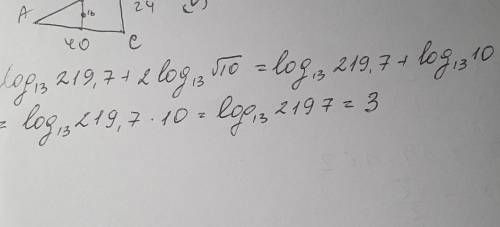 A 16 24
40 C
log₁₃ 219,7 + 2 log₁₃ √10 = log₁₃ 219,7 + log₁₃ 10
= log₁₃ 219,7 · 10 = log₁₃ 2197 = 3